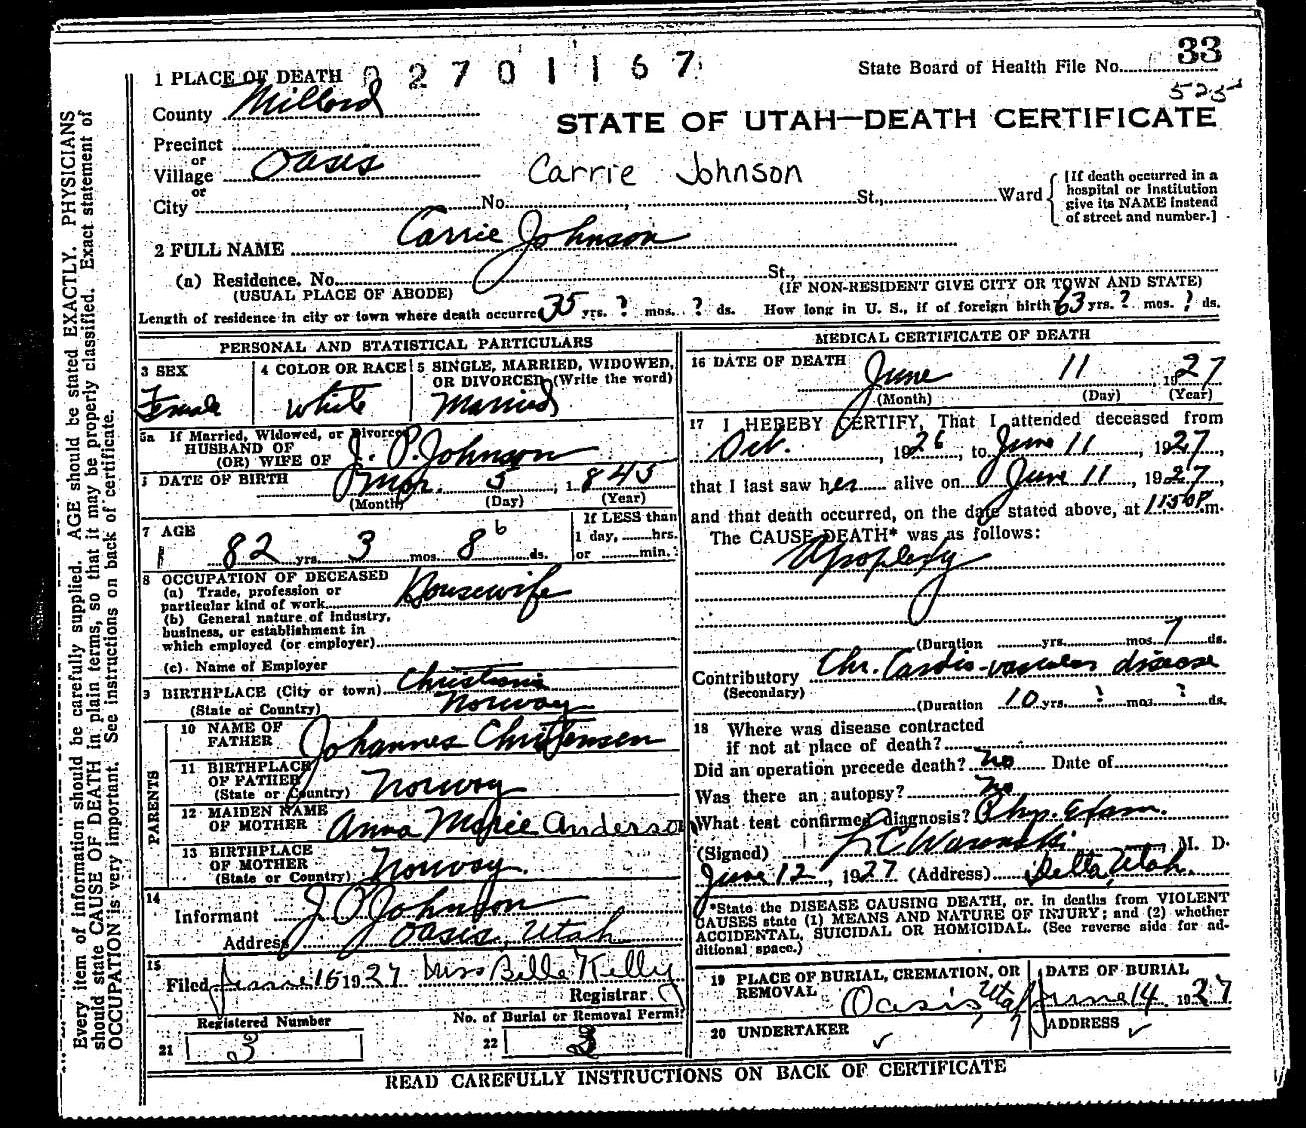 33
1 PLACE OF DEATH 02701167 State Board of Health File No.
525
County Millard
STATE OF UTAH—DEATH CERTIFICATE
Precinct
or
Village Oasis
Carrie Johnson
or
City No. , St., Ward
[If death occurred in a
hospital or institution
give its NAME instead
of street and number.]
2 FULL NAME Carrie Johnson
(a) Residence. No. St.,
(USUAL PLACE OF ABODE) (IF NON-RESIDENT GIVE CITY OR TOWN AND STATE)
Length of residence in city or town where death occurre 35 yrs. ? mos. ? ds. How long in U. S., if of foreign birth 63 yrs. ? mos. ? ds.
PERSONAL AND STATISTICAL PARTICULARS
3 SEX
Female
4 COLOR OR RACE
White
5 SINGLE, MARRIED, WIDOWED,
OR DIVORCED (Write the word)
Married
5a If Married, Widowed, or Divorce
HUSBAND OF
(OR) WIFE OF J. P. Johnson
DATE OF BIRTH Mar. 5, 1845
(Month) (Day) (Year)
7 AGE
82 yrs. 3 mos. 8 6 ds.
If LESS than
1 day, hrs.
or min.
8 OCCUPATION OF DECEASED
(a) Trade, profession or
particular kind of work Housewife
(b) General nature of industry,
business, or establishment in
which employed (or employer)
(c) Name of Employer
9 BIRTHPLACE (City or town) Christiania
(State or Country) Norway
PARENTS
10 NAME OF
FATHER Johannes Christensen
11 BIRTHPLACE
OF FATHER
(State or Country) Norway
12 MAIDEN NAME
OF MOTHER Anna Marie Anderson
13 BIRTHPLACE
OF MOTHER
(State or Country) Norway.
14
Informant J P Johnson
Address Oasis, Utah
15
Filed June 16 1927 Miss Belle Kelly
Registrar
Registered Number
21 3
No. of Burial or Removal Permit
22 3
MEDICAL CERTIFICATE OF DEATH
16 DATE OF DEATH
June 11, 1927
(Month) (Day) (Year)
17 I HEREBY CERTIFY, That I attended deceased from
Oct. , 1926, to June 11, 1927,
that I last saw her alive on June 11, 1927,
and that death occurred, on the date stated above, at 1150P.m.
The CAUSE OF DEATH* was as follows:
Apoplexy
(Duration yrs. mos. 7 ds.
Contributory Chr. Cardio-vascular disease
(Secondary)
(Duration 10 yrs. ? mos. ? ds.
18 Where was disease contracted
if not at place of death?
Did an operation precede death? no Date of
Was there an autopsy? no
What test confirmed diagnosis? Phy. Exam.
(Signed) , M. D.
June 12, 1927 (Address) Delta, Utah.
*State the DISEASE CAUSING DEATH, or, in deaths from VIOLENT
CAUSES state (1) MEANS AND NATURE OF INJURY; and (2) whether
ACCIDENTAL, SUICIDAL OR HOMICIDAL. (See reverse side for ad-
ditional space.)
19 PLACE OF BURIAL, CREMATION, OR
REMOVAL Oasis Utah
DATE OF BURIAL
June 14, 1927
20 UNDERTAKER
✓
ADDRESS
✓
READ CAREFULLY INSTRUCTIONS ON BACK OF CERTIFICATE
Every item of information should be carefully supplied. AGE should be stated EXACTLY. PHYSICIANS
should state CAUSE OF DEATH in plain terms, so that it may be properly classified. Exact statement of
OCCUPATION is very important. See instructions on back of certificate.